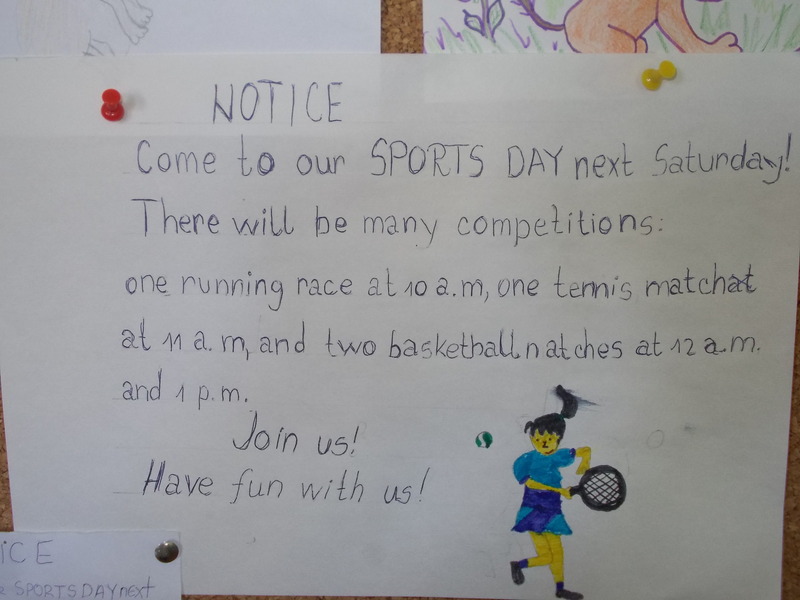 NOTICE
Come to our SPORTS DAY next Saturday!
There will be many competitions:
one running race at 10 a.m, one tennis matchat
at 11 a.m, and two basketball natches at 12 a.m.
and 1 p.m.
Join us!
Have fun with us!
ICE
SPORTS DAY next